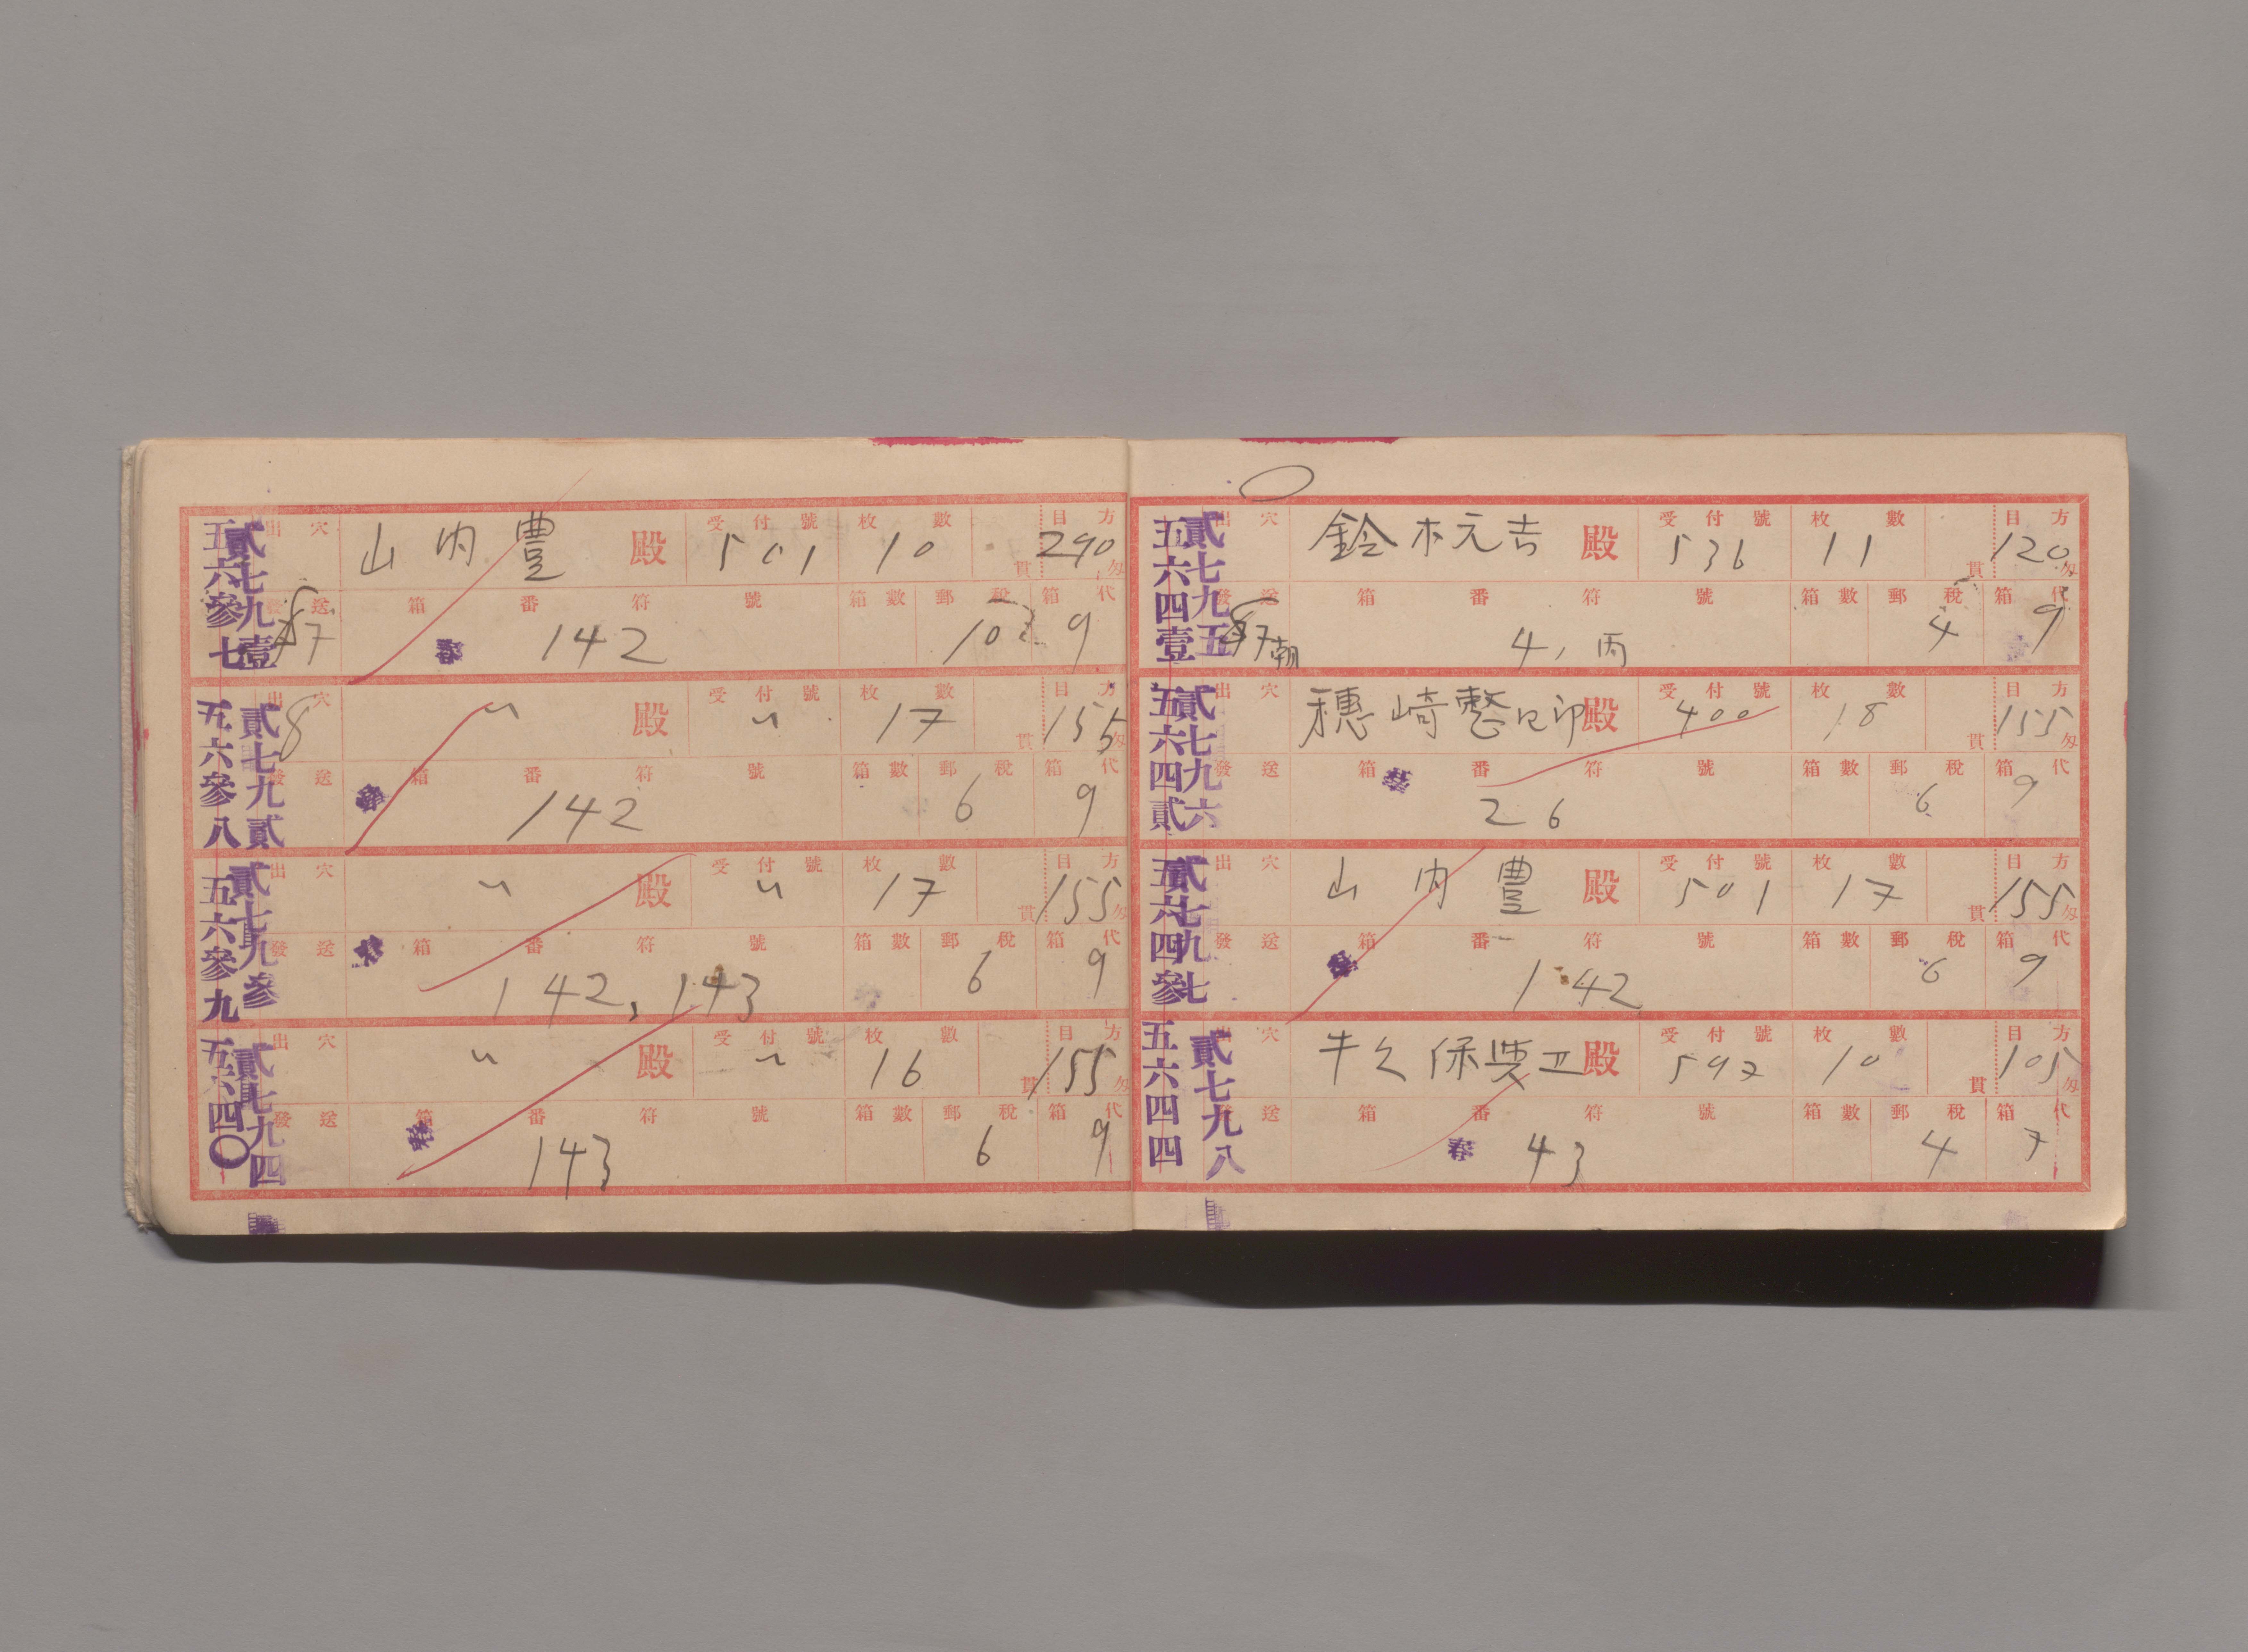 貳七九壹
五六參七
出穴 山内豊 殿 受付號 501 枚數 10 貫 目方 290 匁
發送 7 箱番符號 142 箱數 郵稅 10 箱代 9
貳七九貳
五六參八
出穴 8 〃 殿 受付號 〃 枚數 17 貫 目方 155 匁
發送 箱番符號 142 箱數 郵稅 6 箱代 9
貳七九參
五六參九
出穴 〃 殿 受付號 〃 枚數 17 貫 目方 155 匁
發送 箱番符號 142、143 箱數 郵稅 6 箱代 9
貳七九四
五六四〇
出穴 〃 殿 受付號 〃 枚數 16 貫 目方 155 匁
發送 箱番符號 143 箱數 郵稅 6 箱代 9
貳七九五
五六四壹
出穴 鈴木元吉 殿 受付號 536 枚數 11 貫 目方 120 匁
發送 8/7 朝 箱番符號 4、丙 箱數 郵稅 4 箱代 9
貳七九六
五六四貳
出穴 穗崎 殿 受付號 400 枚數 18 貫 目方 155 匁
發送 箱番符號 26 箱數 郵稅 6 箱代 9
貳七九七
五六四參
出穴 山内豊 殿 受付號 501 枚數 17 貫 目方 155 匁
發送 箱番符號 142 箱數 郵稅 6 箱代 9
貳七九八
五六四四
出穴 牛久保 殿 受付號 597 枚數 10 貫 目方 105 匁
發送 箱番符號 43 箱數 郵稅 4 箱代 7